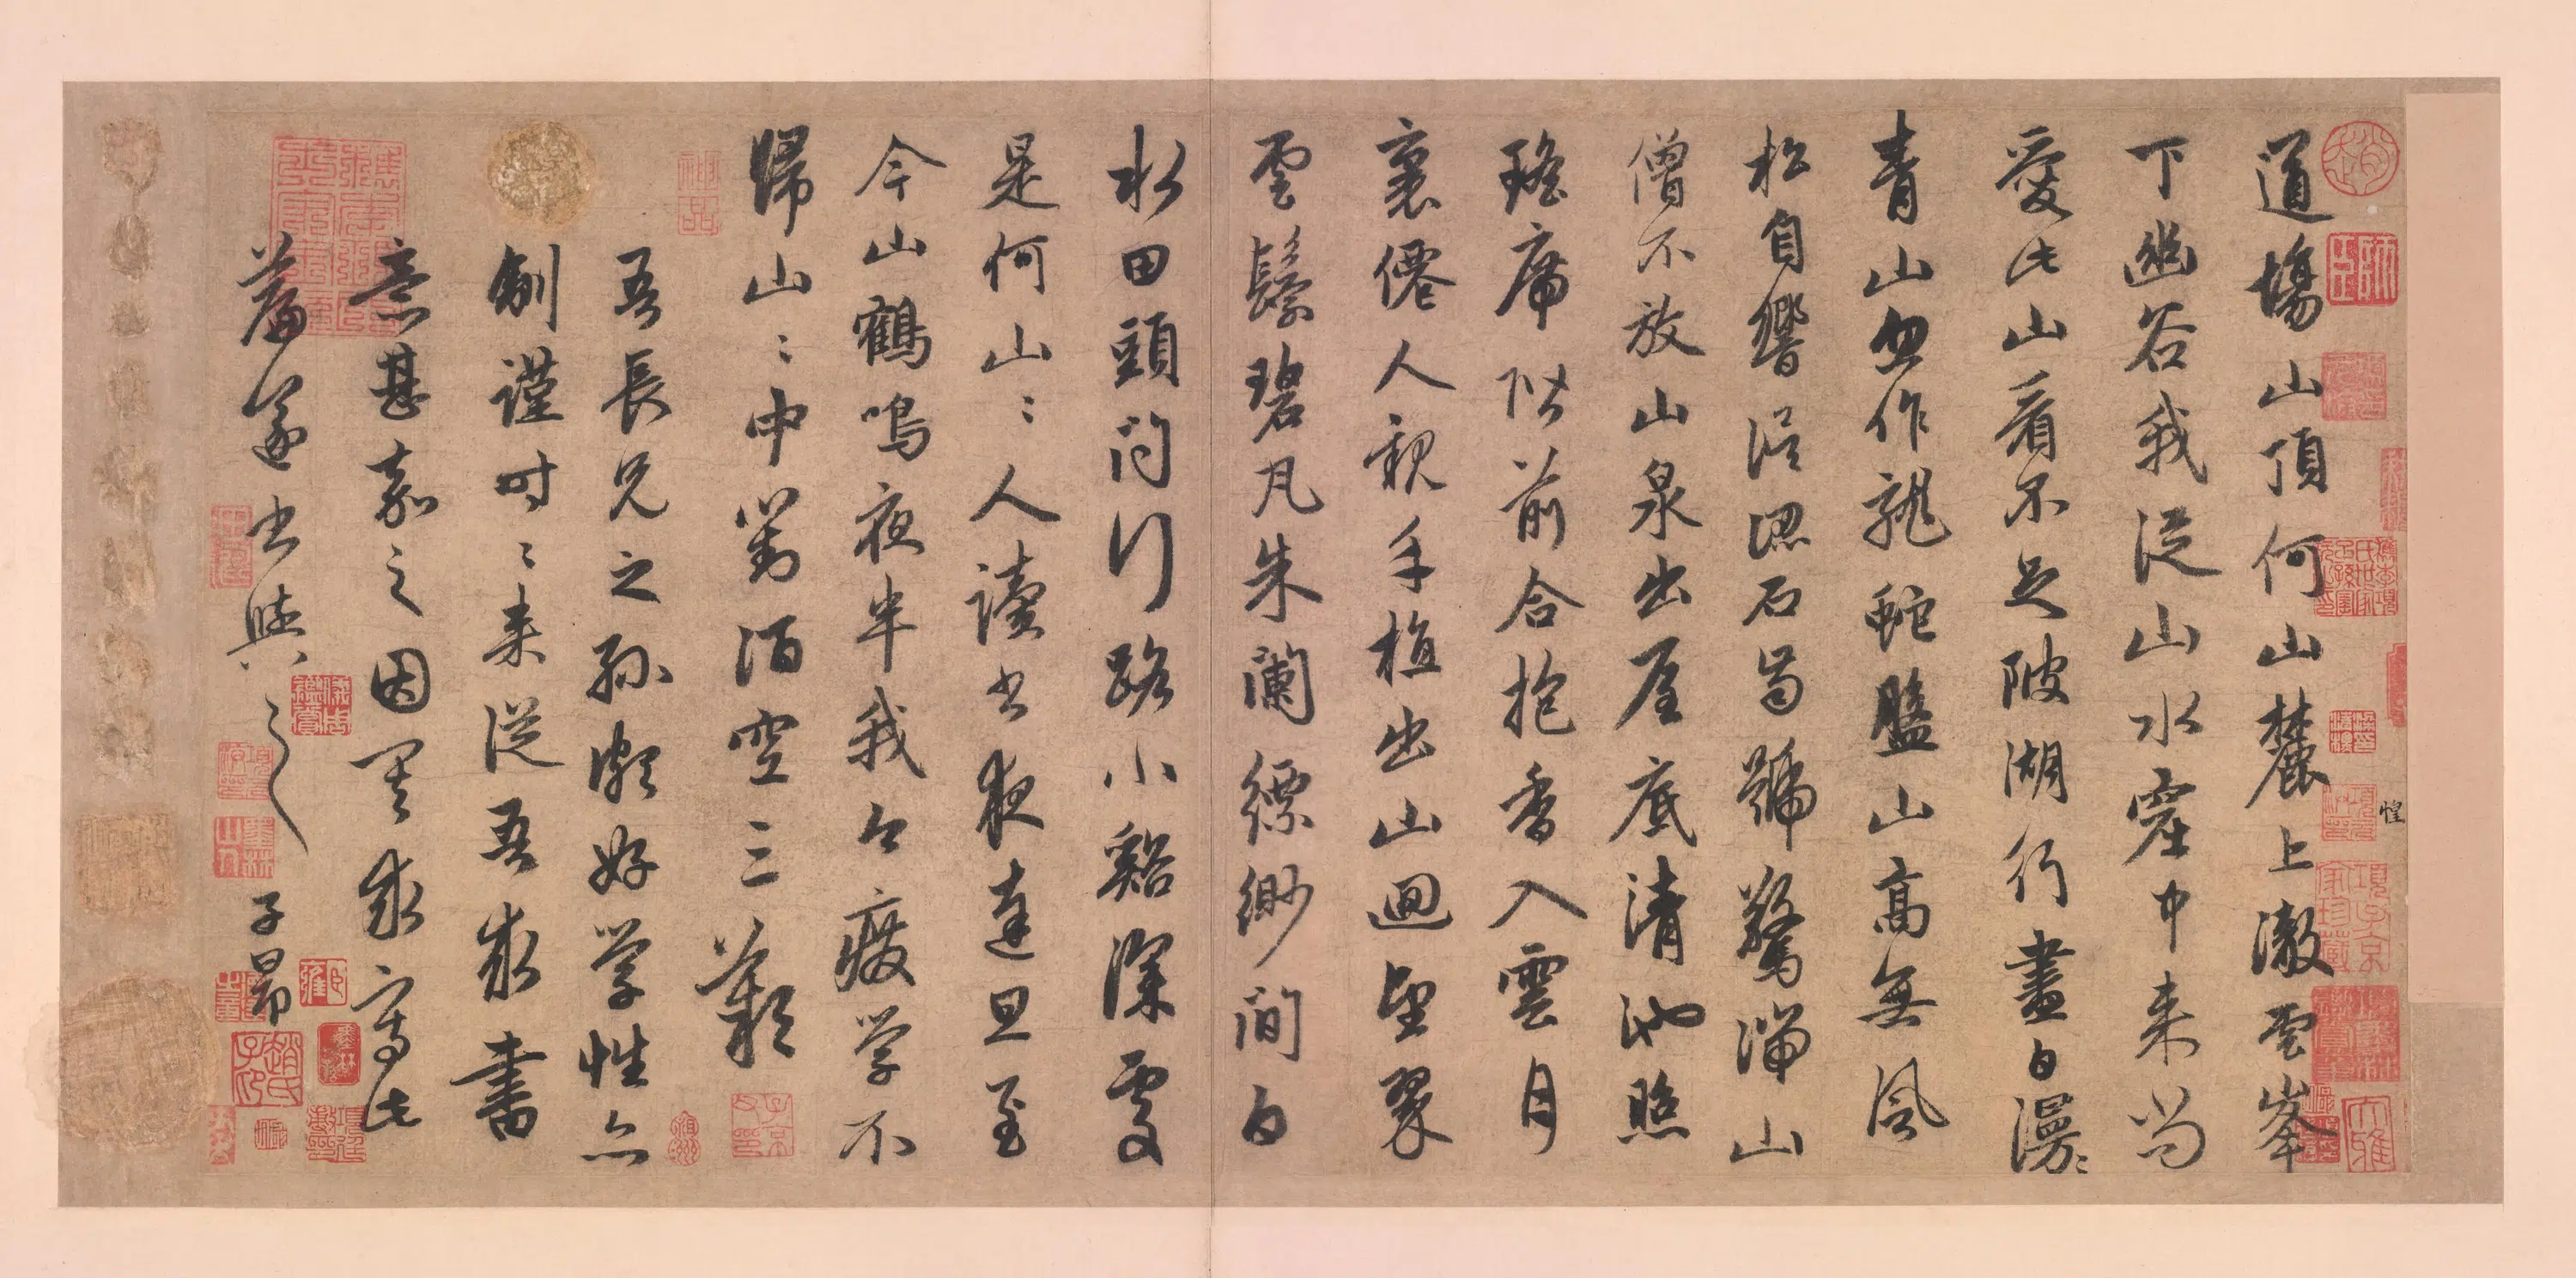 道場山頂何山麓上澈雲峯
下幽谷我從山水窟中来尚
愛此山看不足陂湖行盡白漫〻
青山忽作龍蛇盤山高無風
松自響誤認石齒號驚湍山
僧不放山泉出屋底清池照
瑤席階前合抱香入雲月
裏僊人親手植出山迴望翠
雲鬟碧瓦朱闌縹緲間白
水田頭問行路小谿深處
是何山〻人讀書夜達旦至
今山鶴鳴夜半我今廢學不
歸山〻中對酒空三歎
吾長兄之孫頗好學性亦
淛謹時〻来從吾求書
意甚嘉之因其求寫此
篇遂書與之 子昂
惶
神品